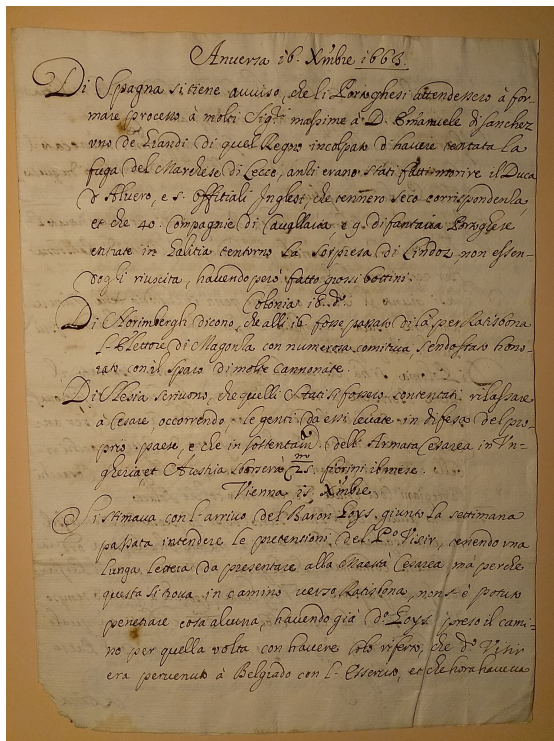 Anversa 16. Xmbre 1663.
Di Spagna si tiene avviso, che li Portoghesi attendessero à for-
mare processo à molti Sigri massime à D. Emanuele di Sanchez
uno de Grandi di quel Regno incolpato d'havere tentata la
fuga del Marchese di Lecce, anzi erano stati fatti morire il Duca
d'Alvero, e 5. offitiali Inglesi che tennero seco corrispondenza,
et che 40. compagnie di Cavallaria e 9. di fantaria Portoghese
entrate in Galitia tentorno la sorpresa di Lindoz non essen-
dogli riuscita, havendo però fatto grossi bottini.
Colonia 18. do.
Di Norimbergh dicono, che alli 16 fosse passato di là per Ratisbona
l'Elettore di Magonza con numerosa comitiva sendo stato hono-
rato con il sparo di molte cannonate.
Di Slesia scrivono, che quelli Stati si fossero contentati rilassare
à Cesare, occorrendo, le genti da essi levate in difesa del pro-
prio paese, e che in sostentam.to dell'Armata Cesarea in Un-
gheria, et Austria fiorini il mese.
Vienna 15. Xmbre
Si stimava con l'arrivo del Baron Goys giunto la settimana
passata intendere le pretensioni del Po. Visir, tenendo una
lunga lettera da presentare alla Maestà Cesarea ma perche
questa si trova in camino verso Ratisbona, non s'è potuto
penetrare cosa alcuna, havendo già do. Goys preso il cami-
no per quella volta con havere solo riferto, che do. Visir
era pervenuto à Belgrado con l'Essercito, et che hora haveva